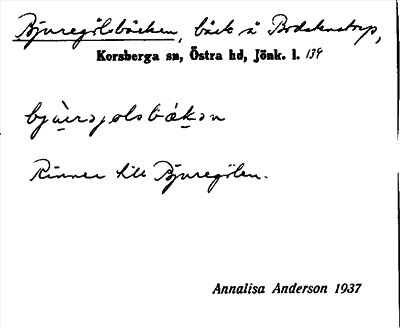 Bjuregölsbäcken, bäck å Bodaknatorp,
Korsberga sn, Östra hd, Jönk. l. 134
bjùrəjølsbäkən
Rinner till Bjuregölen.
Annalisa Anderson 1937